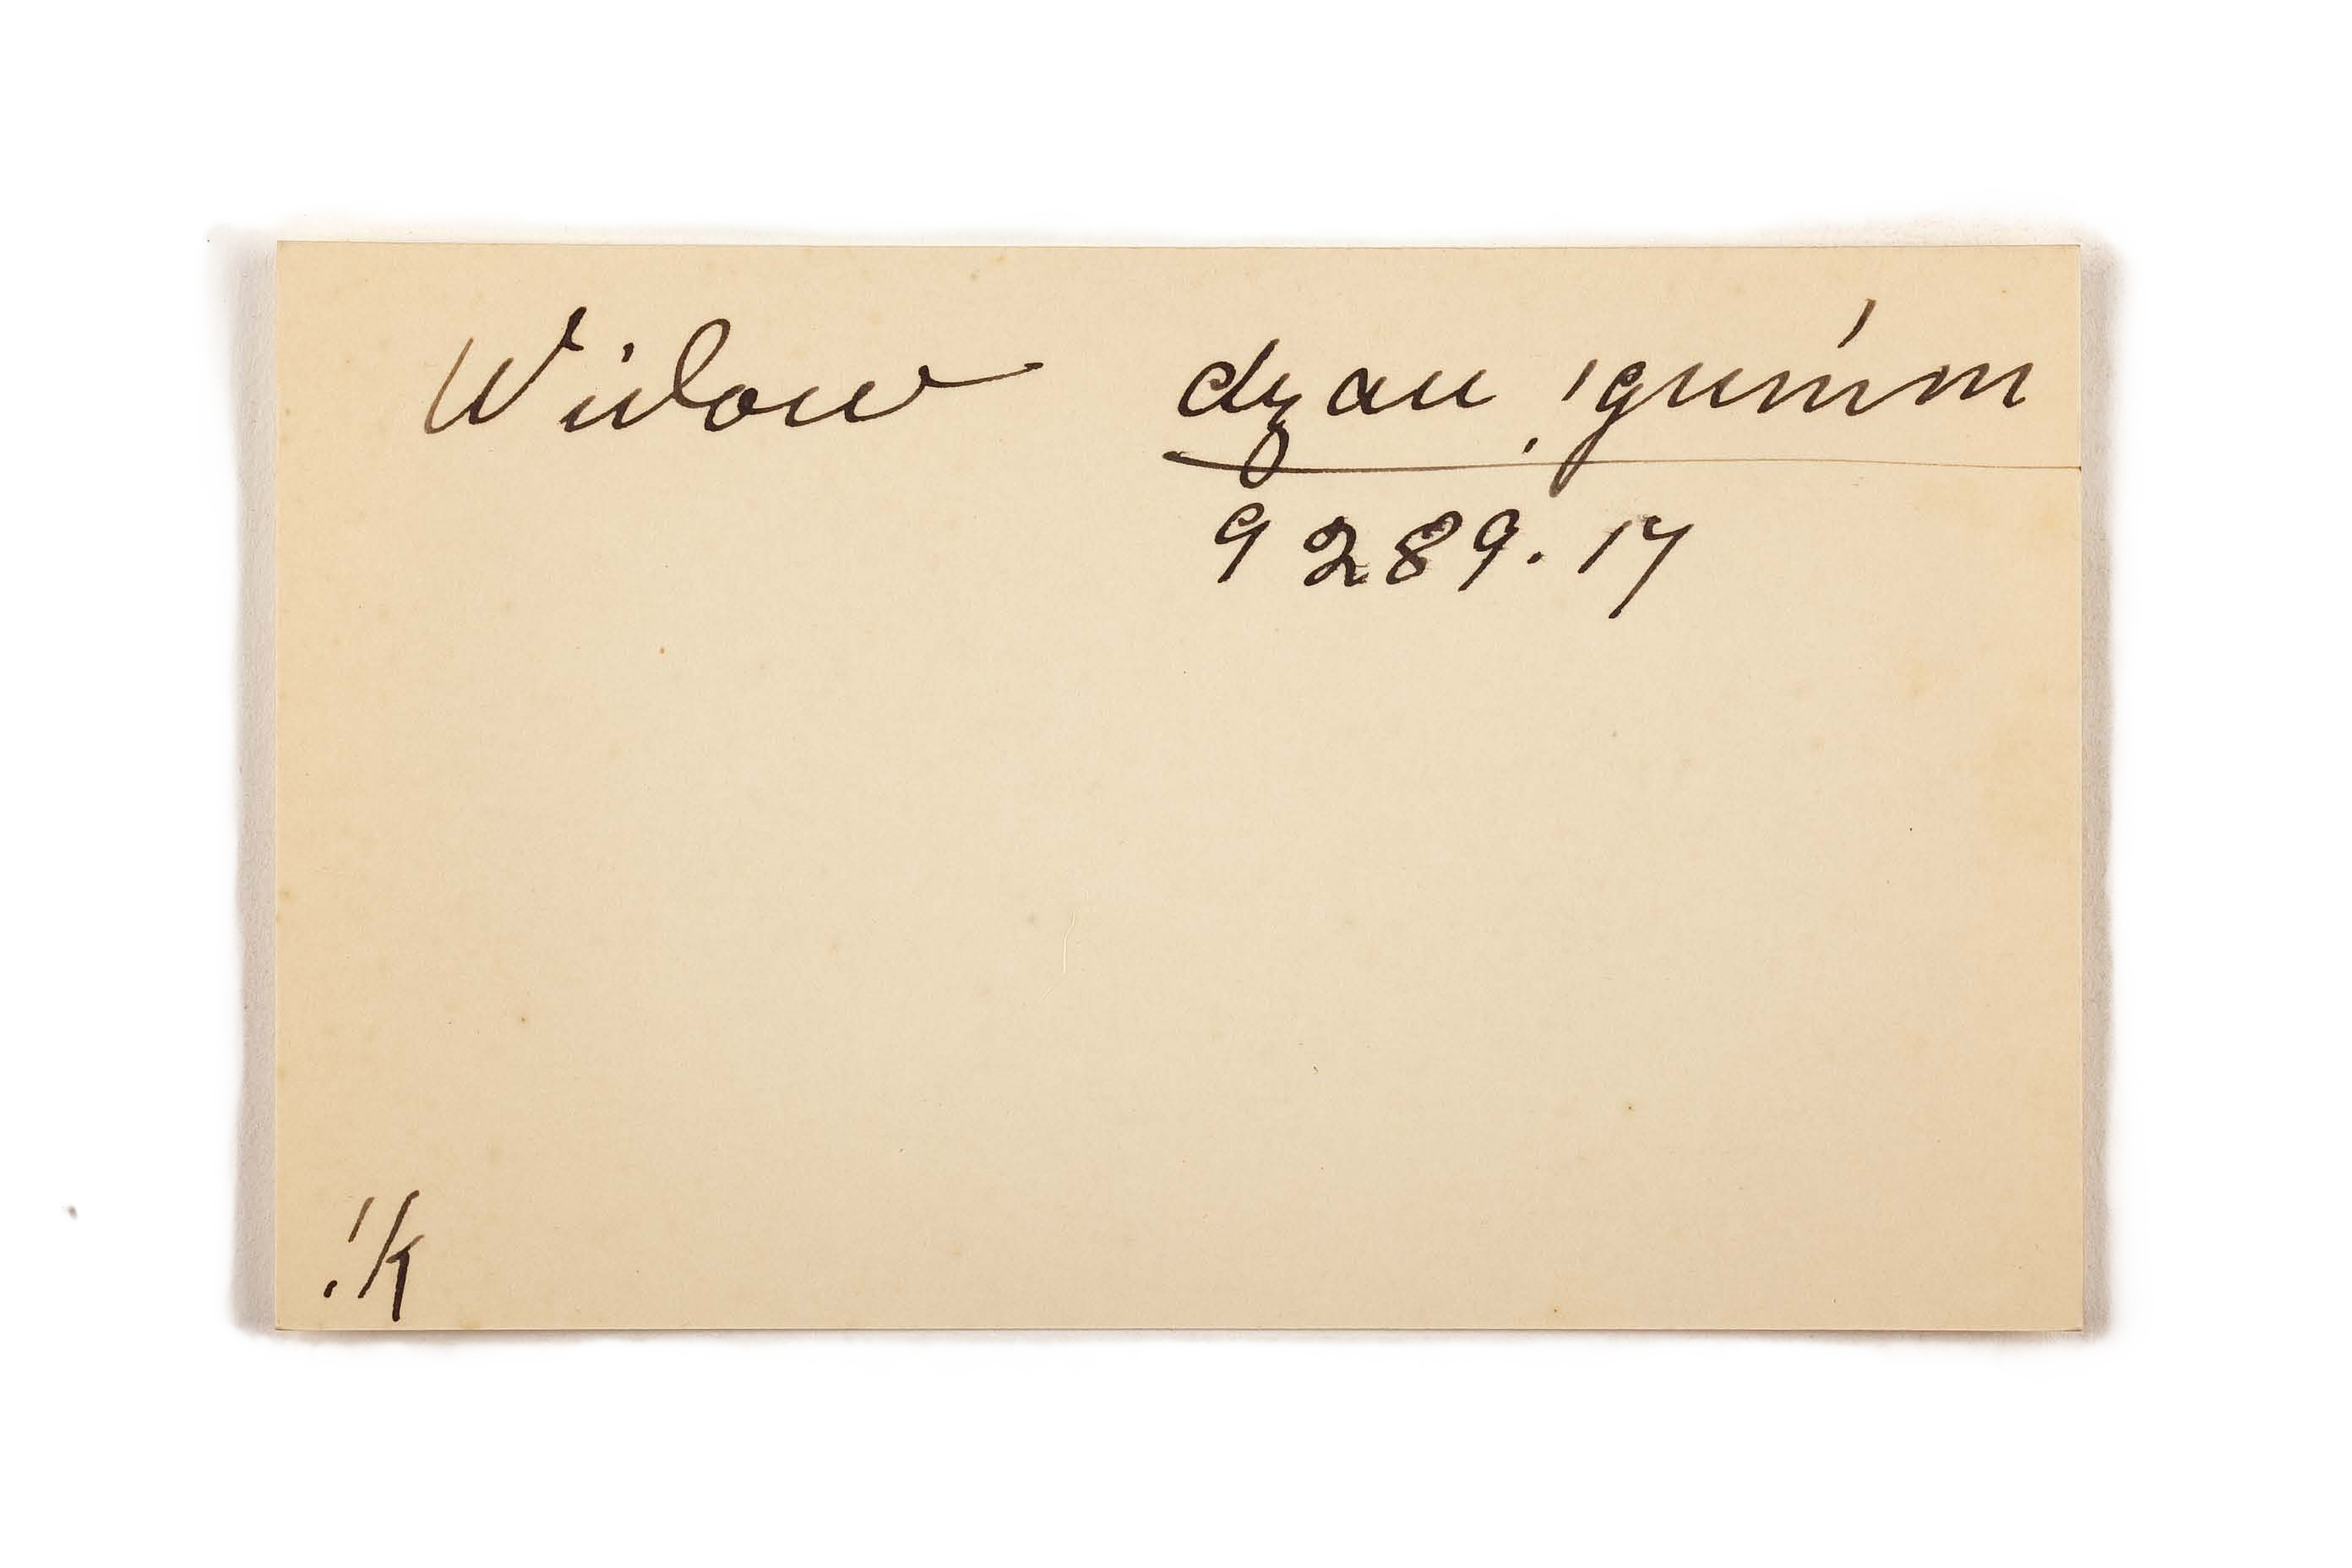 Widow dzau !guḿm
9289.17
!k